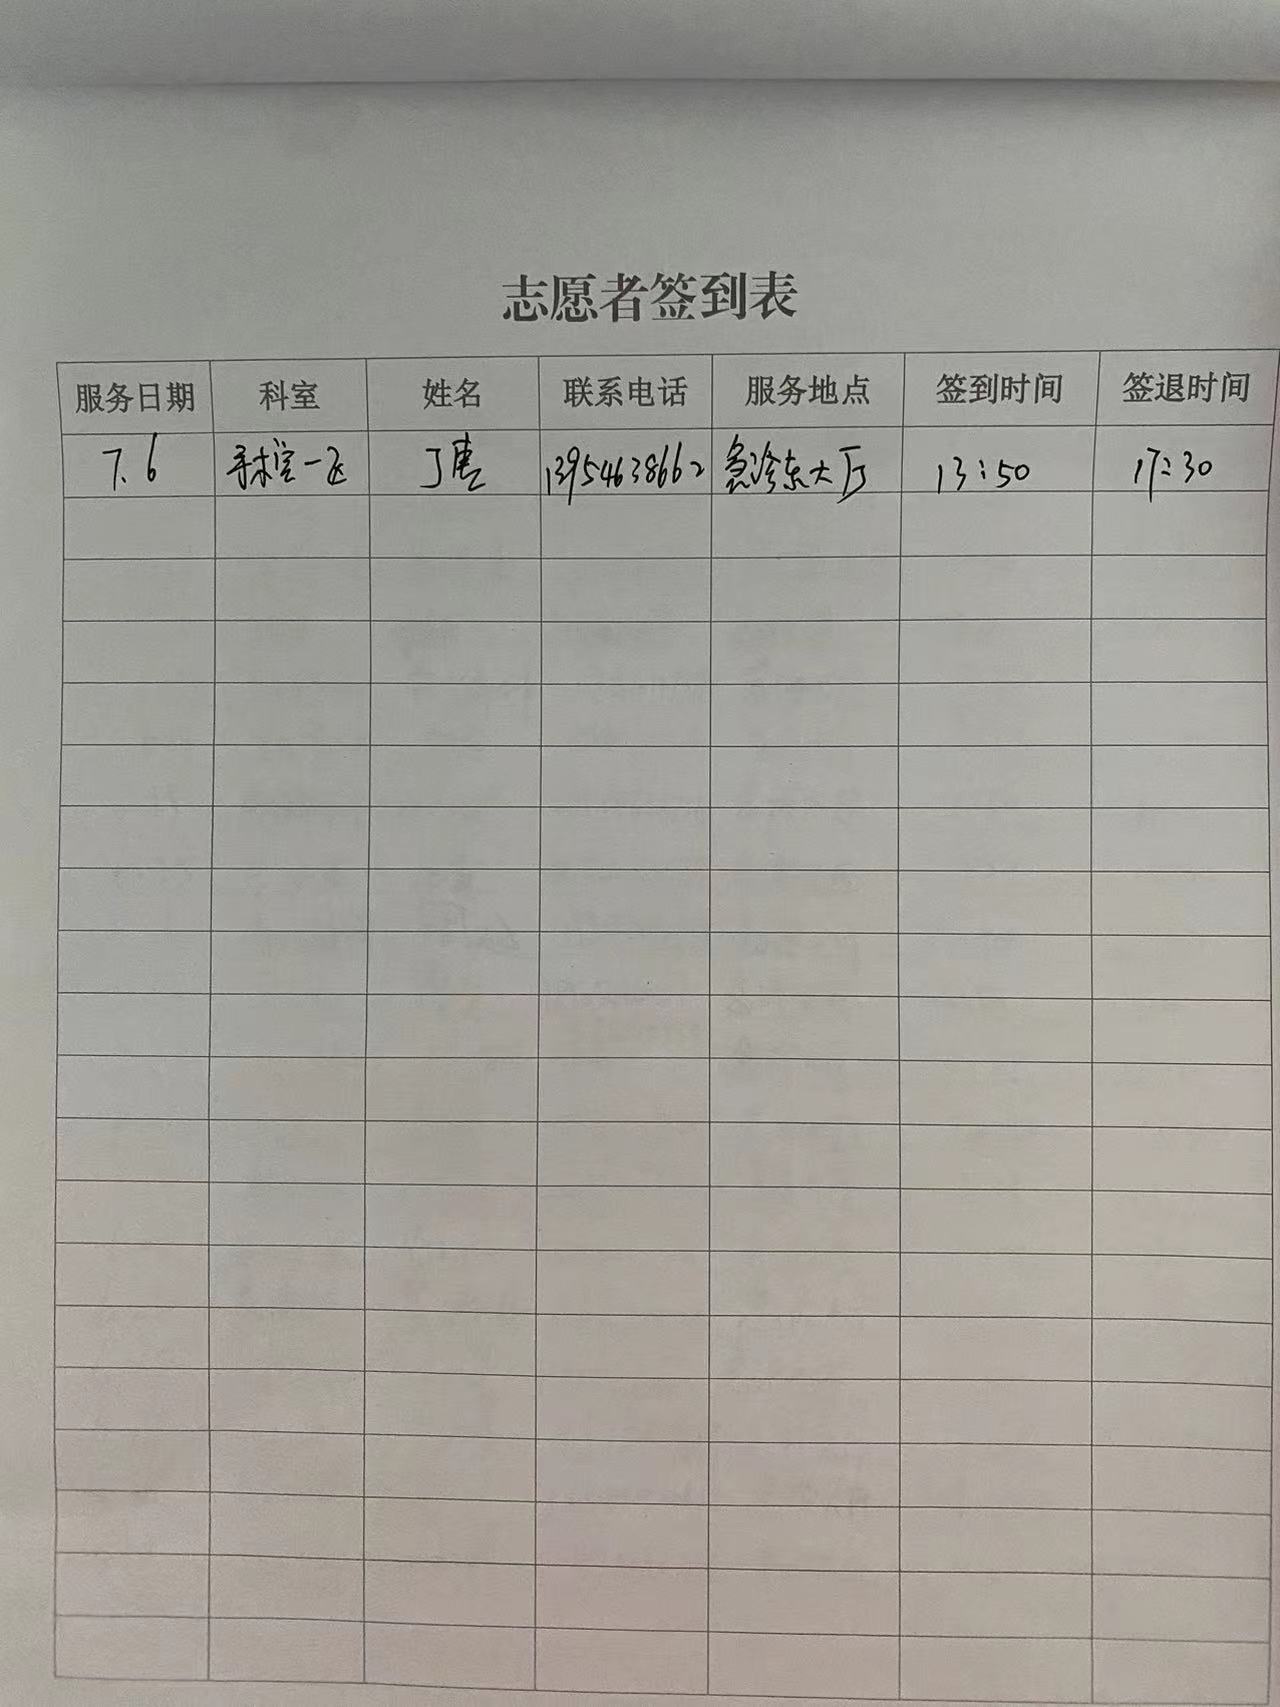 志愿者签到表
服务日期 科室 姓名 联系电话 服务地点 签到时间 签退时间
7.6 手术室一区 丁惠 13954638662 急诊东大厅 13:50 17:30